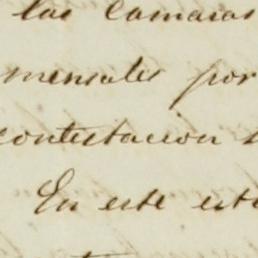 las Camaras
mensales por
contestacion
En este